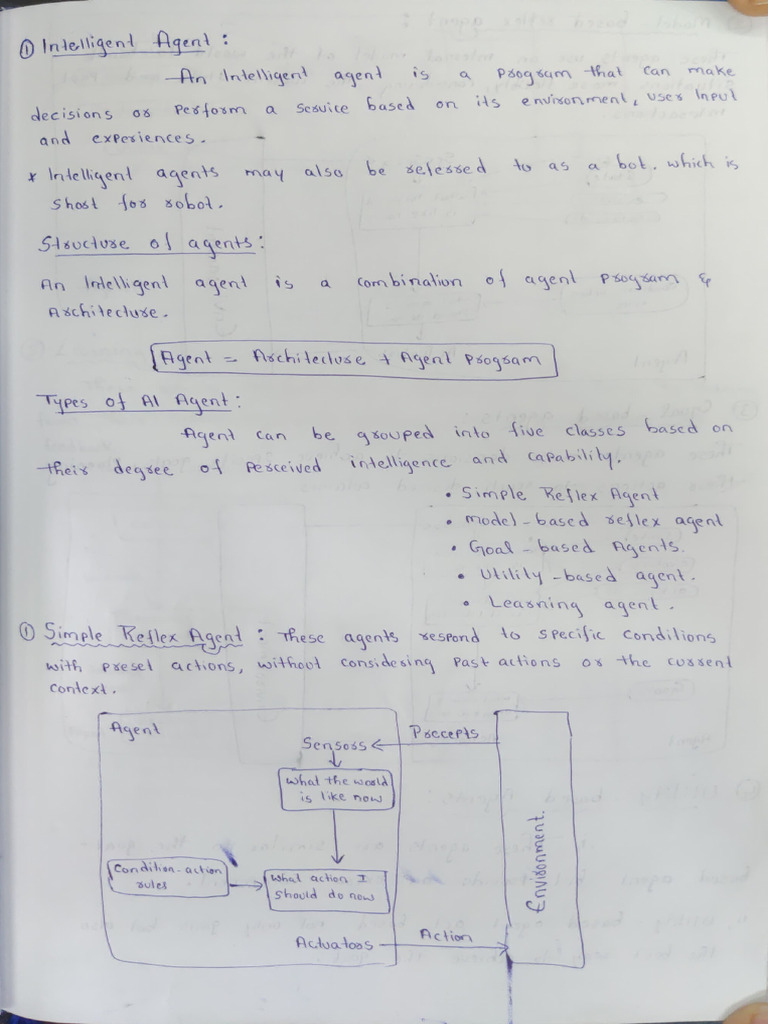 ① Intelligent Agent :
An Intelligent agent is a program that can make
decisions or perform a service based on its environment, user input
and experiences.
* Intelligent agents may also be referred to as a bot. which is
short for robot.
Structure of agents :
An Intelligent agent is a combination of agent program &
Architecture.
Agent = Architecture + Agent program
Types of AI Agent :
Agent can be grouped into five classes based on
their degree of perceived intelligence and capability.
• Simple Reflex Agent
• model-based reflex agent
• Goal-based Agents.
• Utility-based agent.
• Learning agent.
① Simple Reflex Agent : These agents respond to specific conditions
with preset actions, without considering past actions or the current
context.
Agent
Sensors
Precepts
What the world
is like now
Environment.
Condition-action
rules
What action I
should do now
Actuators
Action